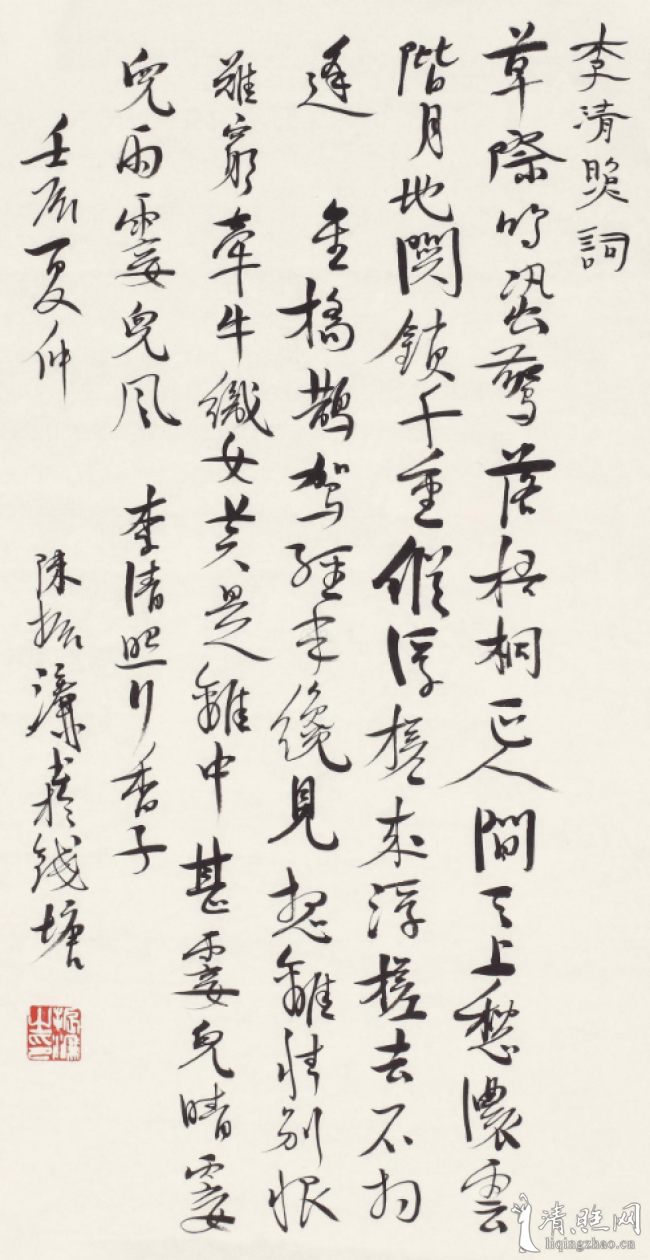 李清照詞
草際鳴蛩驚落梧桐正人間天上愁濃雲
階月地關鎖千重縱浮槎來浮槎去不相
逢　星橋鵲駕經年纔見想離情別恨
難窮牽牛織女莫是離中甚霎兒晴霎
兒雨霎兒風　李清照行香子
壬辰夏仲　陳振濂於錢塘
清照网
liqingzhao.cn